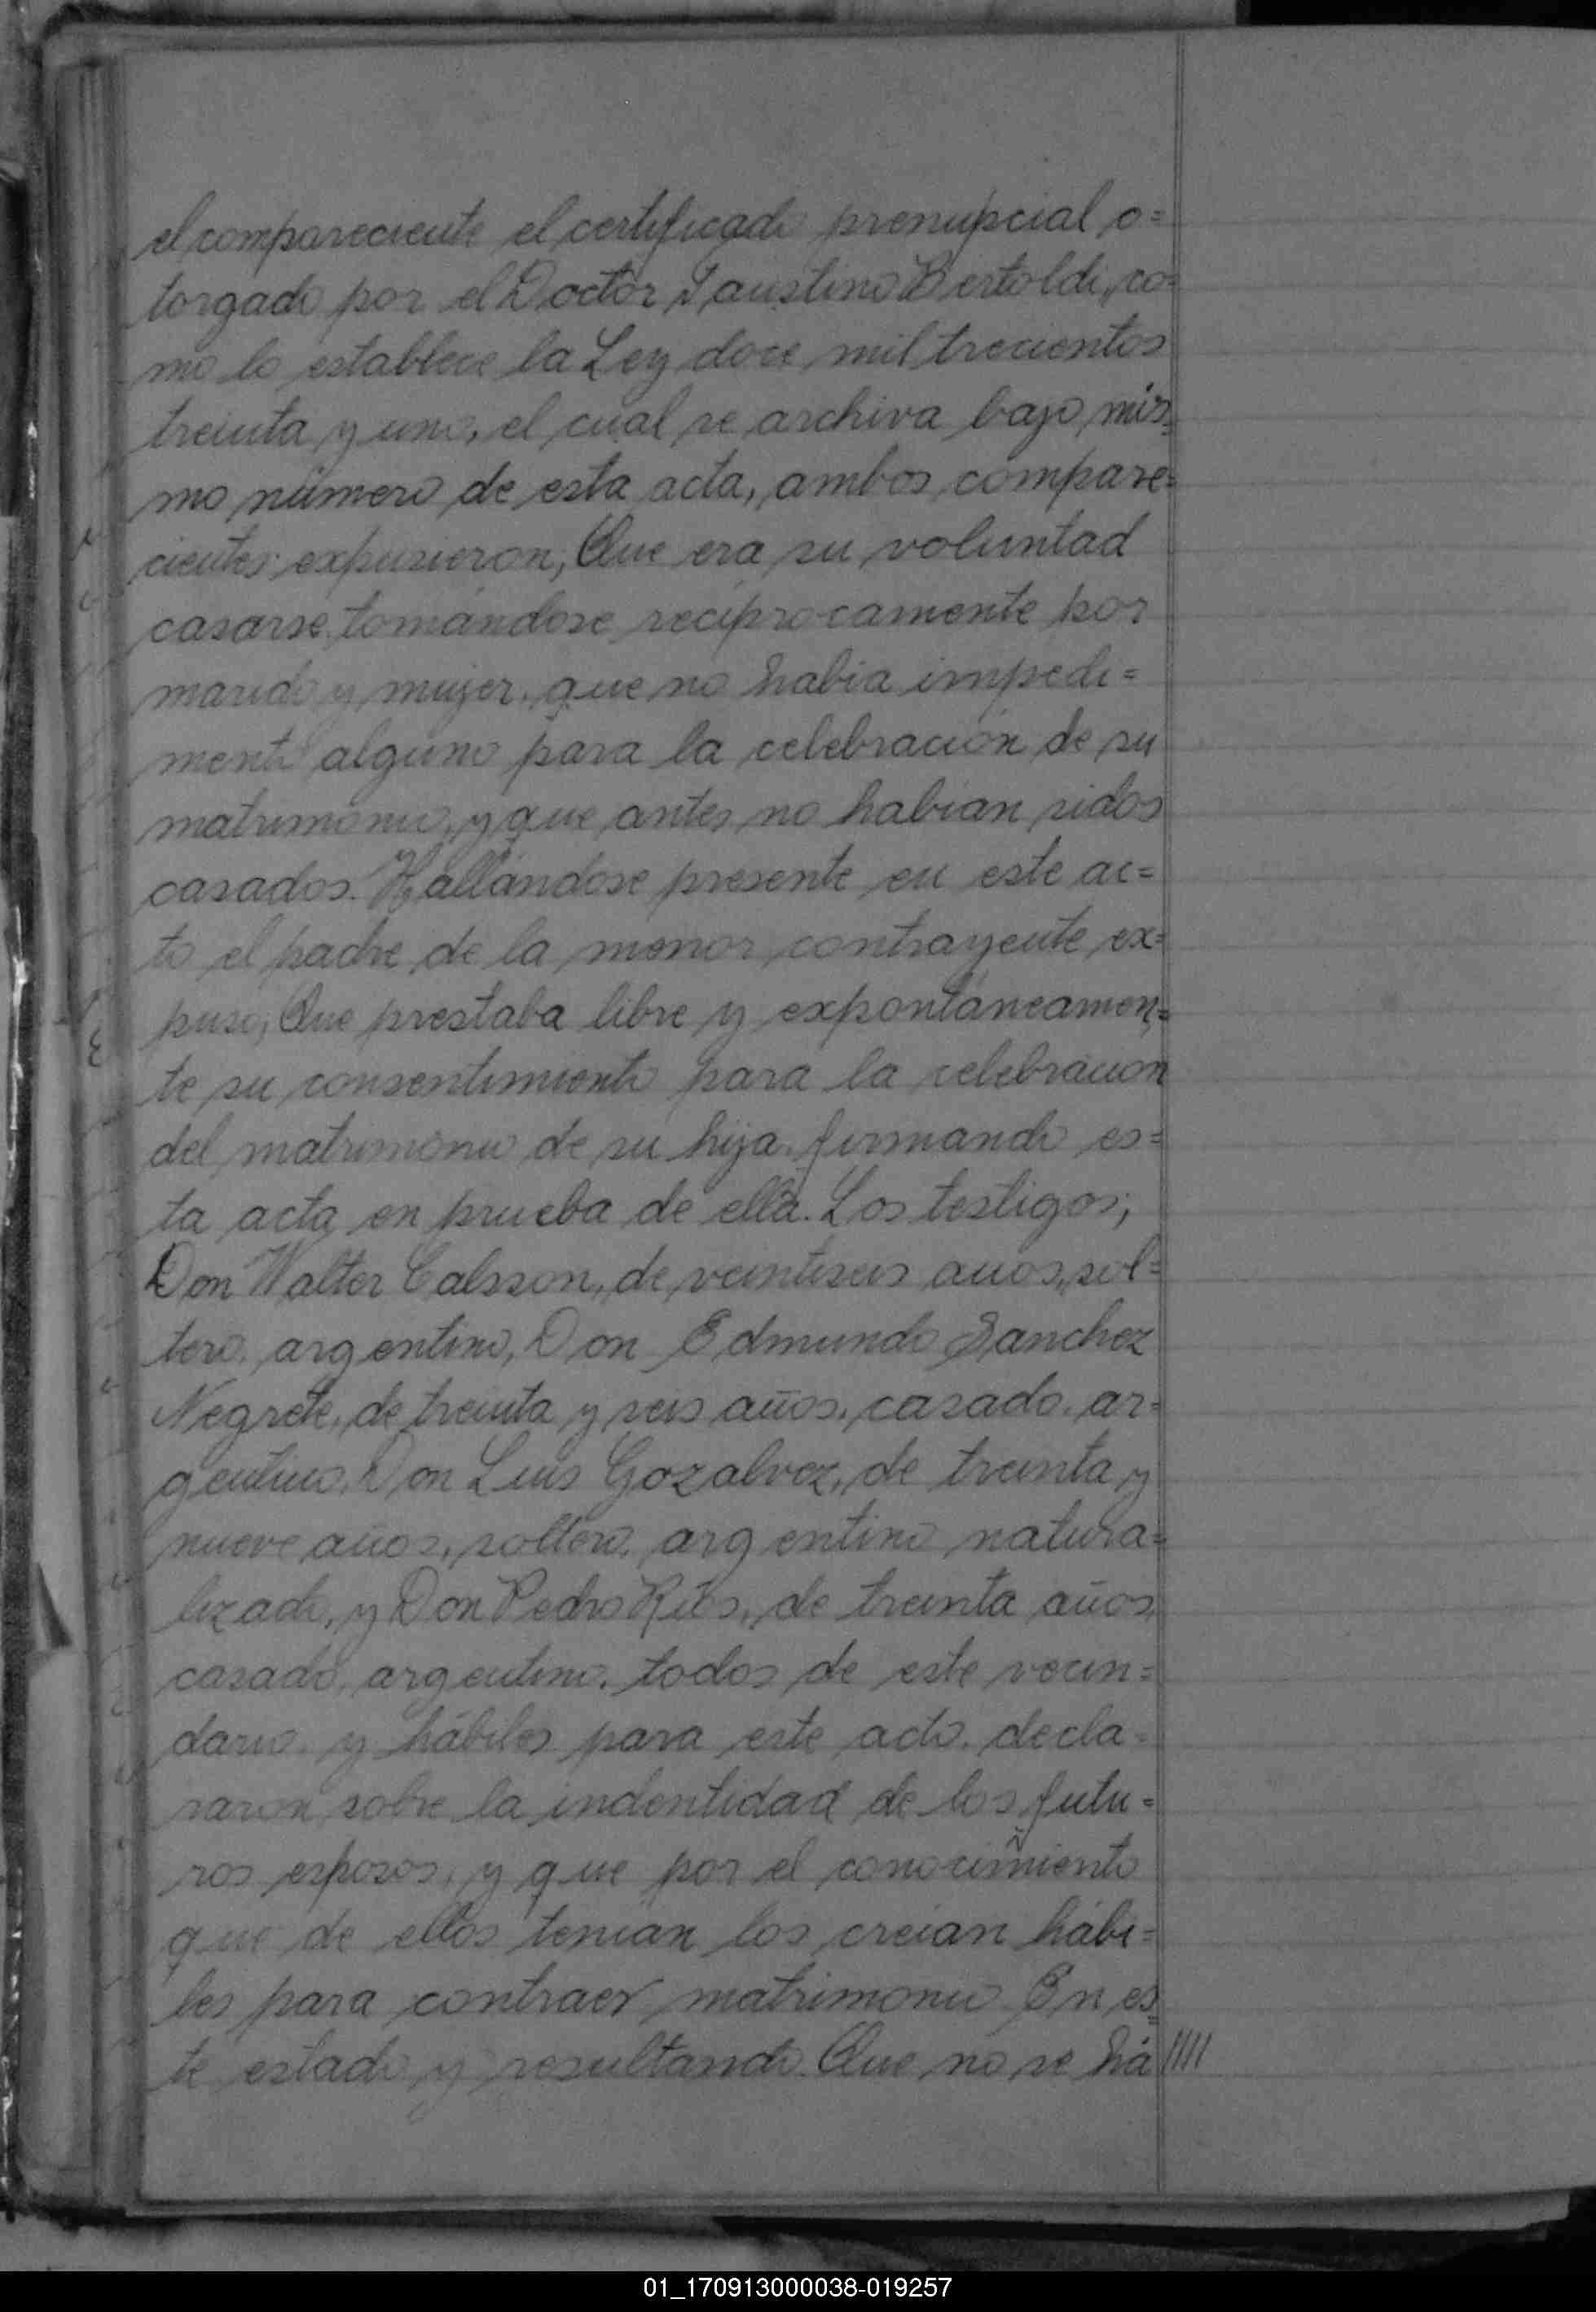 el compareciente el certificado prenupcial o=
torgado por el Doctor Faustino Bertoldi, co=
mo lo establece la Ley doce mil trecientos
treinta y uno, el cual se archiva bajo mis=
mo número de esta acta, ambos compare=
cientes expusieron; Que era su voluntad
casarse tomándose recíprocamente por
marido y mujer, que no habia impedi=
mento alguno para la celebración de su
matrimonio, y que antes no habían sidos
casados. Hallándose presente en este ac=
to el padre de la menor contrayente ex=
puso; Que prestaba libre y expontáneamen=
te su consentimiento para la celebración
del matrimonio de su hija, firmando es=
ta acta en prueba de ella. Los testigos;
Don Walter Calsson, de veintiseis años, sol=
tero, argentino, Don Edmundo Sanchez
Negrete, de treinta y seis años, casado, ar=
gentino, Don Luis Gozalvez, de treinta y
nueve años, soltero, argentino natura=
lizado, y Don Pedro Ríos, de treinta años,
casado, argentino, todos de este vecin=
dario y hábiles para este acto, decla=
raron sobre la indentidad de los futu=
ros esposos, y que por el conocimiento
que de ellos tenían los creían hábi=
les para contraer matrimonio En es=
te estado y resultando. Que no se há ////
01_170913000038-019257